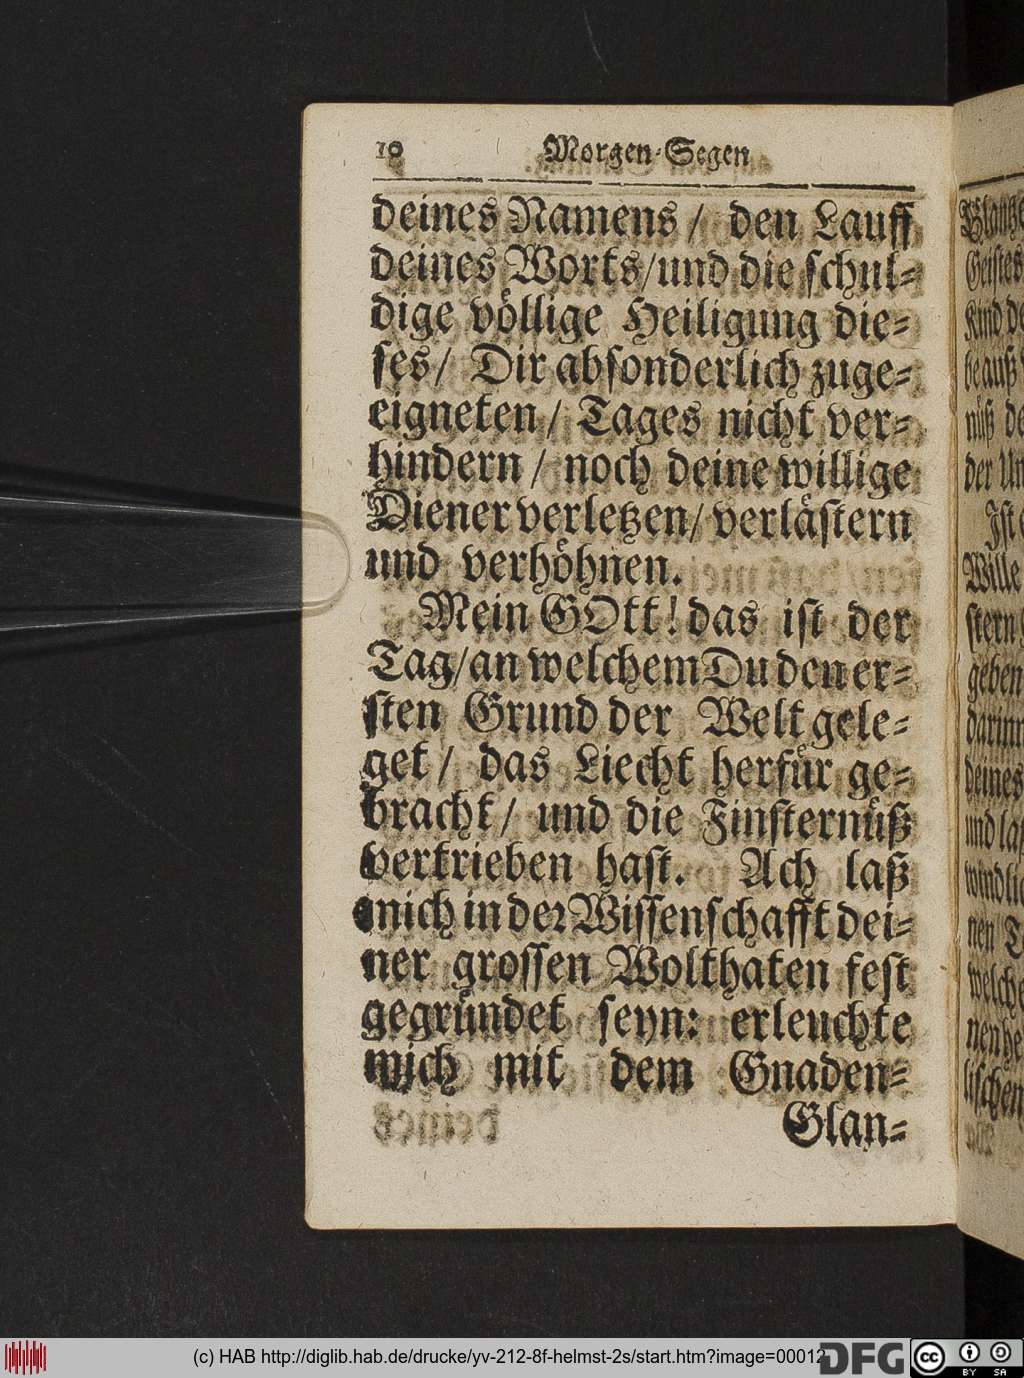 10 Morgen-Segen
deines Namens / den Lauff
deines Worts/und die schul-
dige völlige Heiligung die-
ses/ Dir absonderlich zuge-
eigneten / Tages nicht ver-
hindern / noch deine willige
Diener verletzen/ verlästern
und verhöhnen.
Mein GOtt! das ist der
Tag/an welchem Du den er-
sten Grund der Welt gele-
get / das Liecht herfür ge-
bracht/ und die Finsternüß
vertrieben hast. Ach laß
mich in der Wissenschafft dei-
ner grossen Wolthaten fest
gegründet seyn: erleuchte
mich mit dem Gnaden-
Glan-
Geistes
Kind
der
Wille
stern
geben
darinn
deines
und
nen
welche
lischen
(c) HAB http://diglib.hab.de/drucke/yv-212-8f-helmst-2s/start.htm?image=00012
DFG
cc BY SA